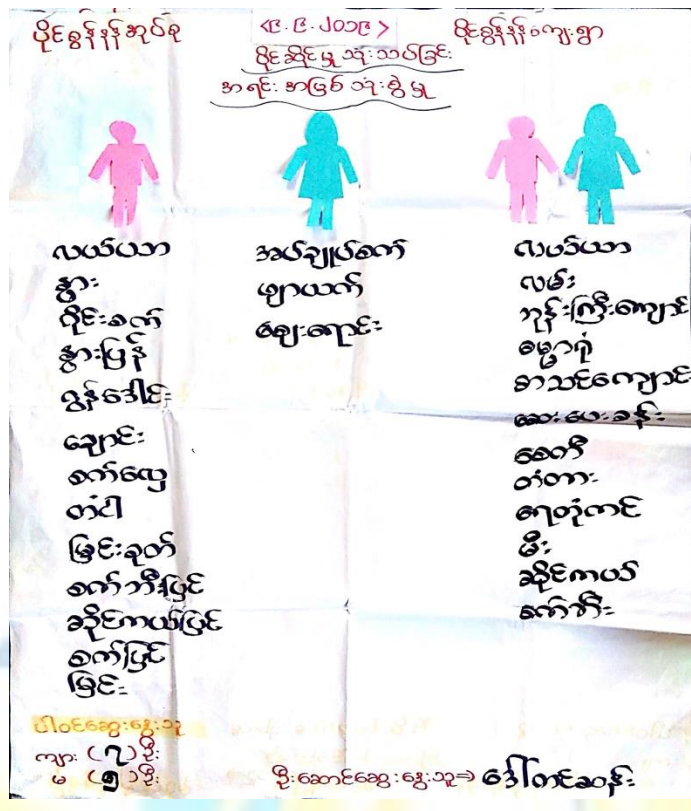 ပိုင်ခွန်နန်အုပ်စု
<၉.၉.၂၀၁၉>
ပိုင်ခွန်နန်ကျေးရွာ
ပိုင်ဆိုင်မှု သုံးသပ်ခြင်း
အရင်းအမြစ် သုံးစွဲမှု
လယ်ယာ
နွား
ဝိုင်းစက်
နွားပြန်
ဂွန်ဒေါင်း
ချောင်း
စက်လှေ
တံငါ
မြင်းခုတ်
စက်ဘီးပြင်
ဆိုင်ကယ်ပြင်
စက်ပြင်
မြင်း
အပ်ချုပ်စက်
ဖျာယက်
ဈေးရောင်း
လယ်ယာ
လမ်း
ဘုန်းကြီးကျောင်း
ဓမ္မာရုံ
စာသင်ကျောင်း
ဆေးပေးခန်း
စေတီ
တံတား
ရေတုံကင်
မီး
ဆိုင်ကယ်
စက်ဘီး
ပါဝင်ဆွေးနွေးသူ
ကျား (၇)ဦး
မ (၅)ဦး
ဦးဆောင်ဆွေးနွေးသူ⇒ ဒေါ်တင်ဆန်း